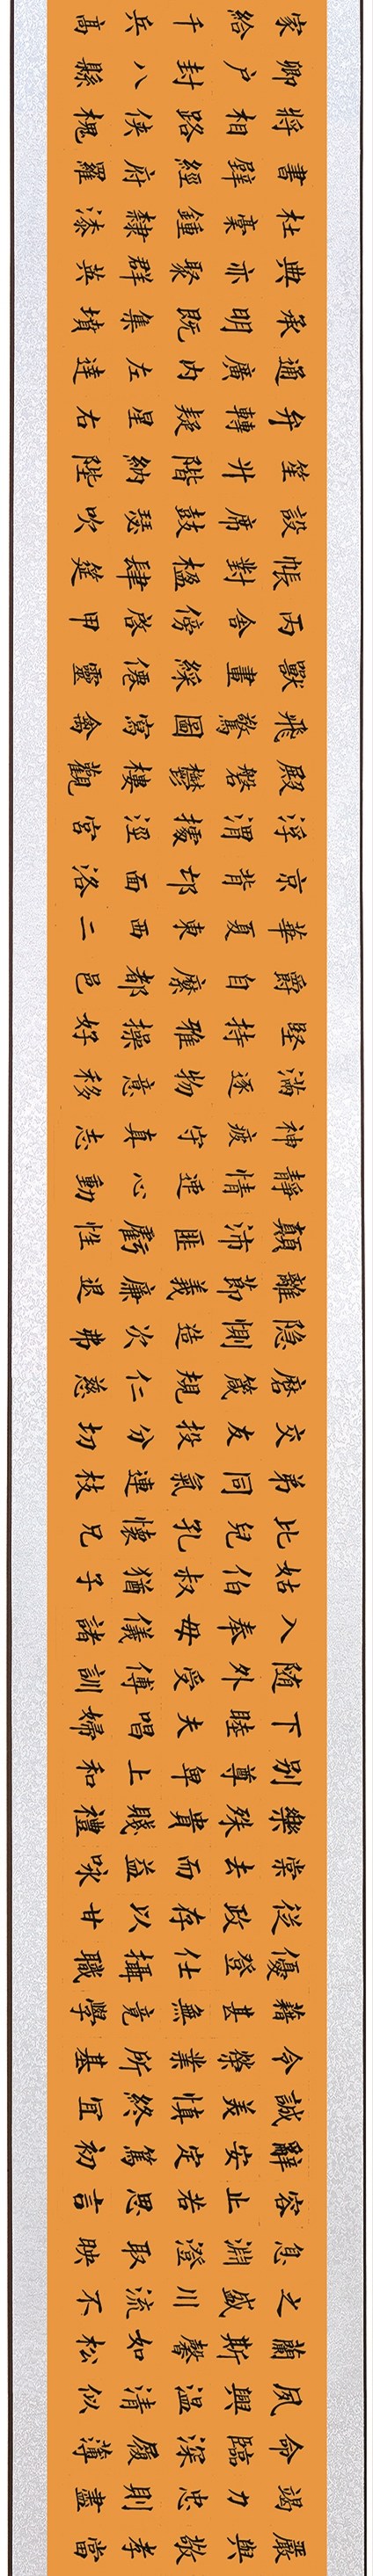 嚴與敬孝當
竭力忠則盡
命臨深履薄
夙興温清似
蘭斯馨如松
之盛川流不
息淵澄取映
容止若思言
辭安定篤初
誠美慎終宜
令榮業所基
籍甚無竟學
優登仕攝職
從政存以甘
棠去而益咏
樂殊貴賤禮
別尊卑上和
下睦夫唱婦
随外受傅訓
入奉母儀諸
姑伯叔猶子
比兒孔懷兄
弟同氣連枝
交友投分切
磨箴規仁慈
隐惻造次弗
離節義廉退
顛沛匪虧性
靜情逸心動
神疲守真志
滿逐物意移
堅持雅操好
爵自縻都邑
華夏東西二
京背邙面洛
浮渭據涇宮
殿磐鬱樓觀
飛驚圖寫禽
獸畫綵僊靈
丙舍傍啓甲
帳對楹肆筵
設席鼓瑟吹
笙升階納陛
弁轉疑星右
通廣内左達
承明既集墳
典亦聚群英
杜稾鍾隸漆
書壁經府羅
將相路俠槐
卿户封八縣
家給千兵高